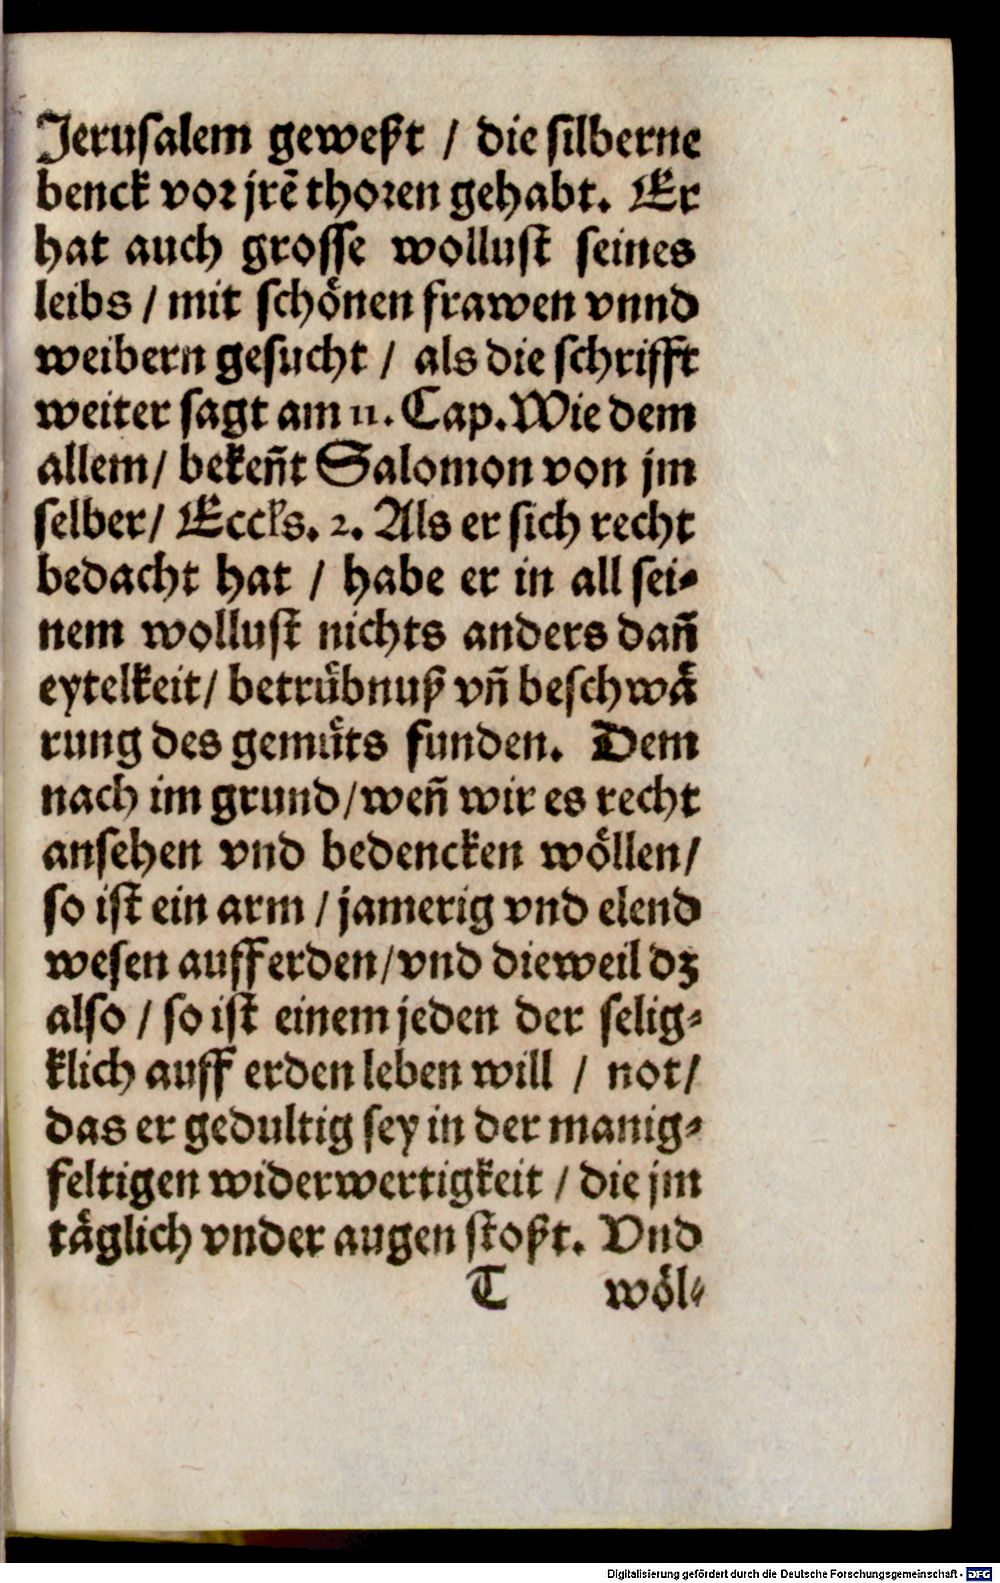 Jerusalem geweßt / die silberne
benck vor jrē thoren gehabt. Er
hat auch grosse wollust seines
leibs / mit schönen frawen vnnd
weibern gesucht / als die schrifft
weiter sagt am 11. Cap. Wie dem
allem / bekeñt Salomon von jm
selber / Eccls. 2. Als er sich recht
bedacht hat / habe er in all sei-
nem wollust nichts anders dañ
eytelkeit / betrübnuß vñ beschwä
rung des gemüts funden. Dem
nach im grund / weñ wir es recht
ansehen vnd bedencken wöllen /
so ist ein arm / jamerig vnd elend
wesen auff erden / vnd dieweil dz
also / so ist einem jeden der selig-
klich auff erden leben will / not /
das er gedultig sey in der manig-
feltigen widerwertigkeit / die jm
täglich vnder augen stoßt. Vnd
T wöl-
Digitalisierung gefördert durch die Deutsche Forschungsgemeinschaft - DFG